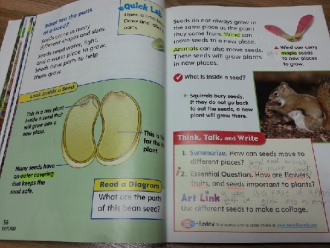 What are the parts
of a seed?
Seeds come in many
different shapes and sizes.
Seeds need water, light,
and a warm place to grow.
Seeds have parts to help
them grow.
Quick Lab
Look Inside a Seed
This is a new plant
inside a seed that
will grow into a
new plant.
This is
for the
plant.
Many seeds have
an outer covering
that keeps the
seed safe.
Read a Diagram
What are the parts
of this bean seed?
56
EXPLAIN
Seeds do not always grow in
the same place as the plant
they came from. Wind can
move seeds to a new place.
Animals can also move seeds.
These seeds will grow plants
in new places.
Wind can carry
maple seeds to
new places
to grow.
What is inside a seed?
Squirrels bury seeds.
If they do not go back
to eat the seeds, a new
plant will grow there.
Think, Talk, and Write
1. Summarize. How can seeds move to
different places?
2. Essential Question. How are flowers,
fruits, and seeds important to plants?
Art Link
Use different seeds to make a collage.